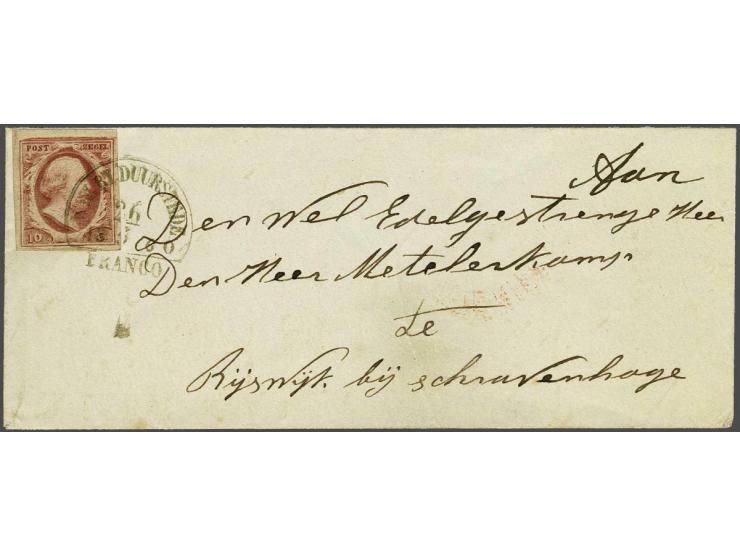 POST ZEGEL
10 C
DUURSTEDE
26
FRANCO
Aan
Den Wel Edelgestrenge Heer
Den Heer Metelerkamp
te
Rijswijk bij schravenhage